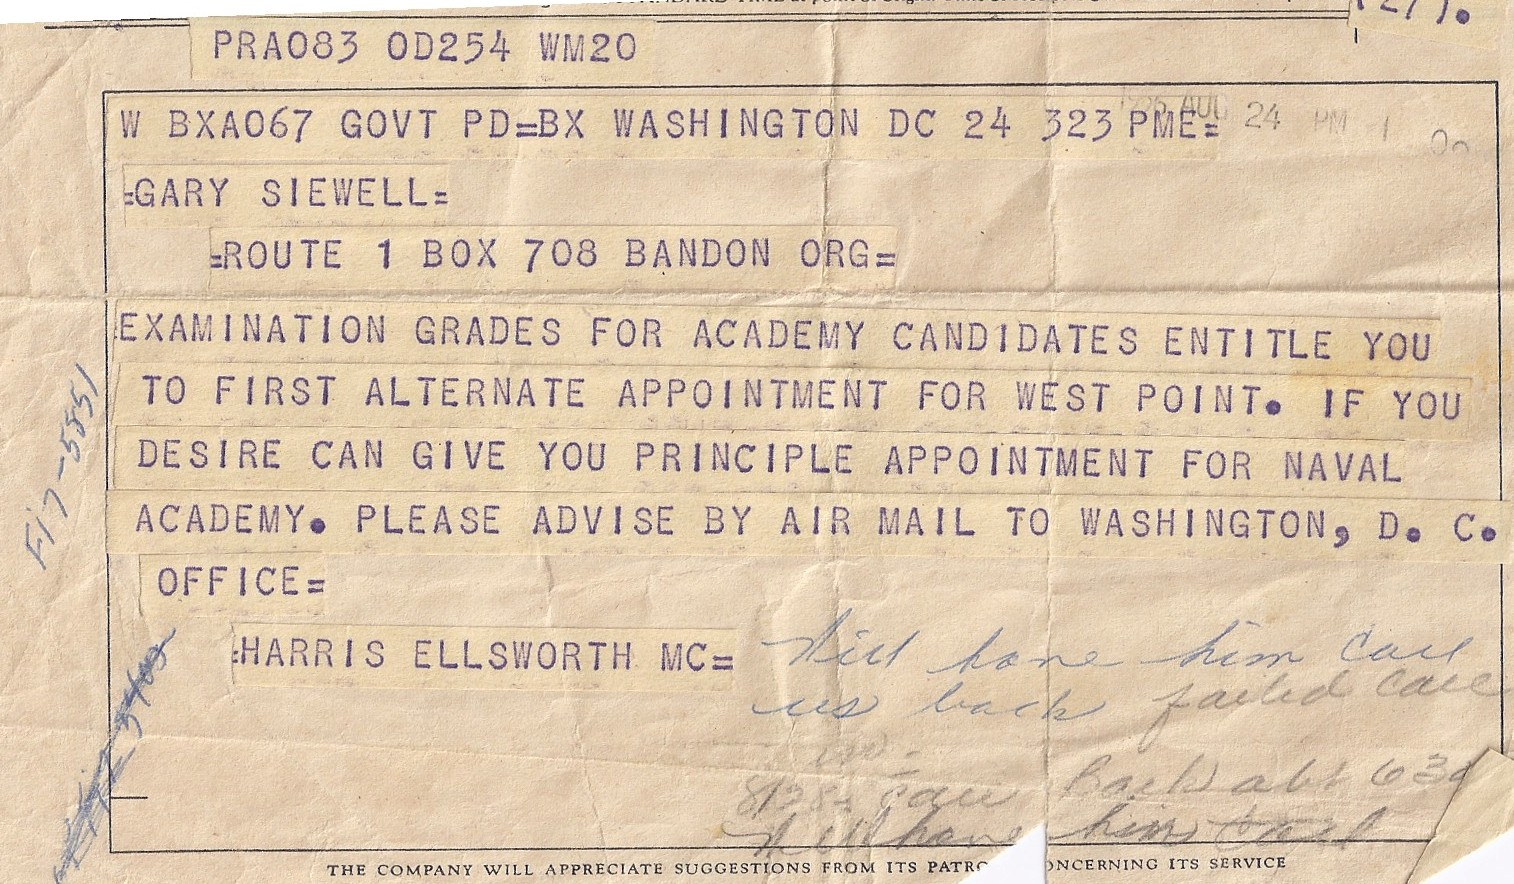 PRA083 OD254 WM20
W BXA067 GOVT PD=BX WASHINGTON DC 24 323 PME=
AUG 24 PM 1
=GARY SIEWELL=
=ROUTE 1 BOX 708 BANDON ORG=
EXAMINATION GRADES FOR ACADEMY CANDIDATES ENTITLE YOU
TO FIRST ALTERNATE APPOINTMENT FOR WEST POINT. IF YOU
DESIRE CAN GIVE YOU PRINCIPLE APPOINTMENT FOR NAVAL
ACADEMY. PLEASE ADVISE BY AIR MAIL TO WASHINGTON, D. C.
OFFICE=
=HARRIS ELLSWORTH MC=
Will have him call
us back failed call
Back abt 630
Will have him call
THE COMPANY WILL APPRECIATE SUGGESTIONS FROM ITS PATRO ONCERNING ITS SERVICE